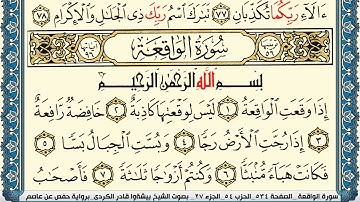 ءَالَآءِ رَبِّكُمَا تُكَذِّبَانِ ٧٧ تَبَٰرَكَ ٱسْمُ رَبِّكَ ذِى ٱلْجَلَٰلِ وَٱلْإِكْرَامِ ٧٨
سُورَةُ الوَاقِعَةِ
بِسْمِ ٱللَّهِ ٱلرَّحْمَٰنِ ٱلرَّحِيمِ
إِذَا وَقَعَتِ ٱلْوَاقِعَةُ ١ لَيْسَ لِوَقْعَتِهَا كَاذِبَةٌ ٢ خَافِضَةٌ رَّافِعَةٌ
٣ إِذَا رُجَّتِ ٱلْأَرْضُ رَجًّا ٤ وَبُسَّتِ ٱلْجِبَالُ بَسًّا ٥
فَكَانَتْ هَبَآءً مُّنۢبَثًّا ٦ وَكُنتُمْ أَزْوَٰجًا ثَلَٰثَةً ٧ فَأَصْحَٰبُ
سورة الواقعة _ الصفحة ٥٣٤_ الحزب ٥٤_ الجزء ٢٧ _ بصوت الشيخ بيشةوا قادر الكردي برواية حفص عن عاصم